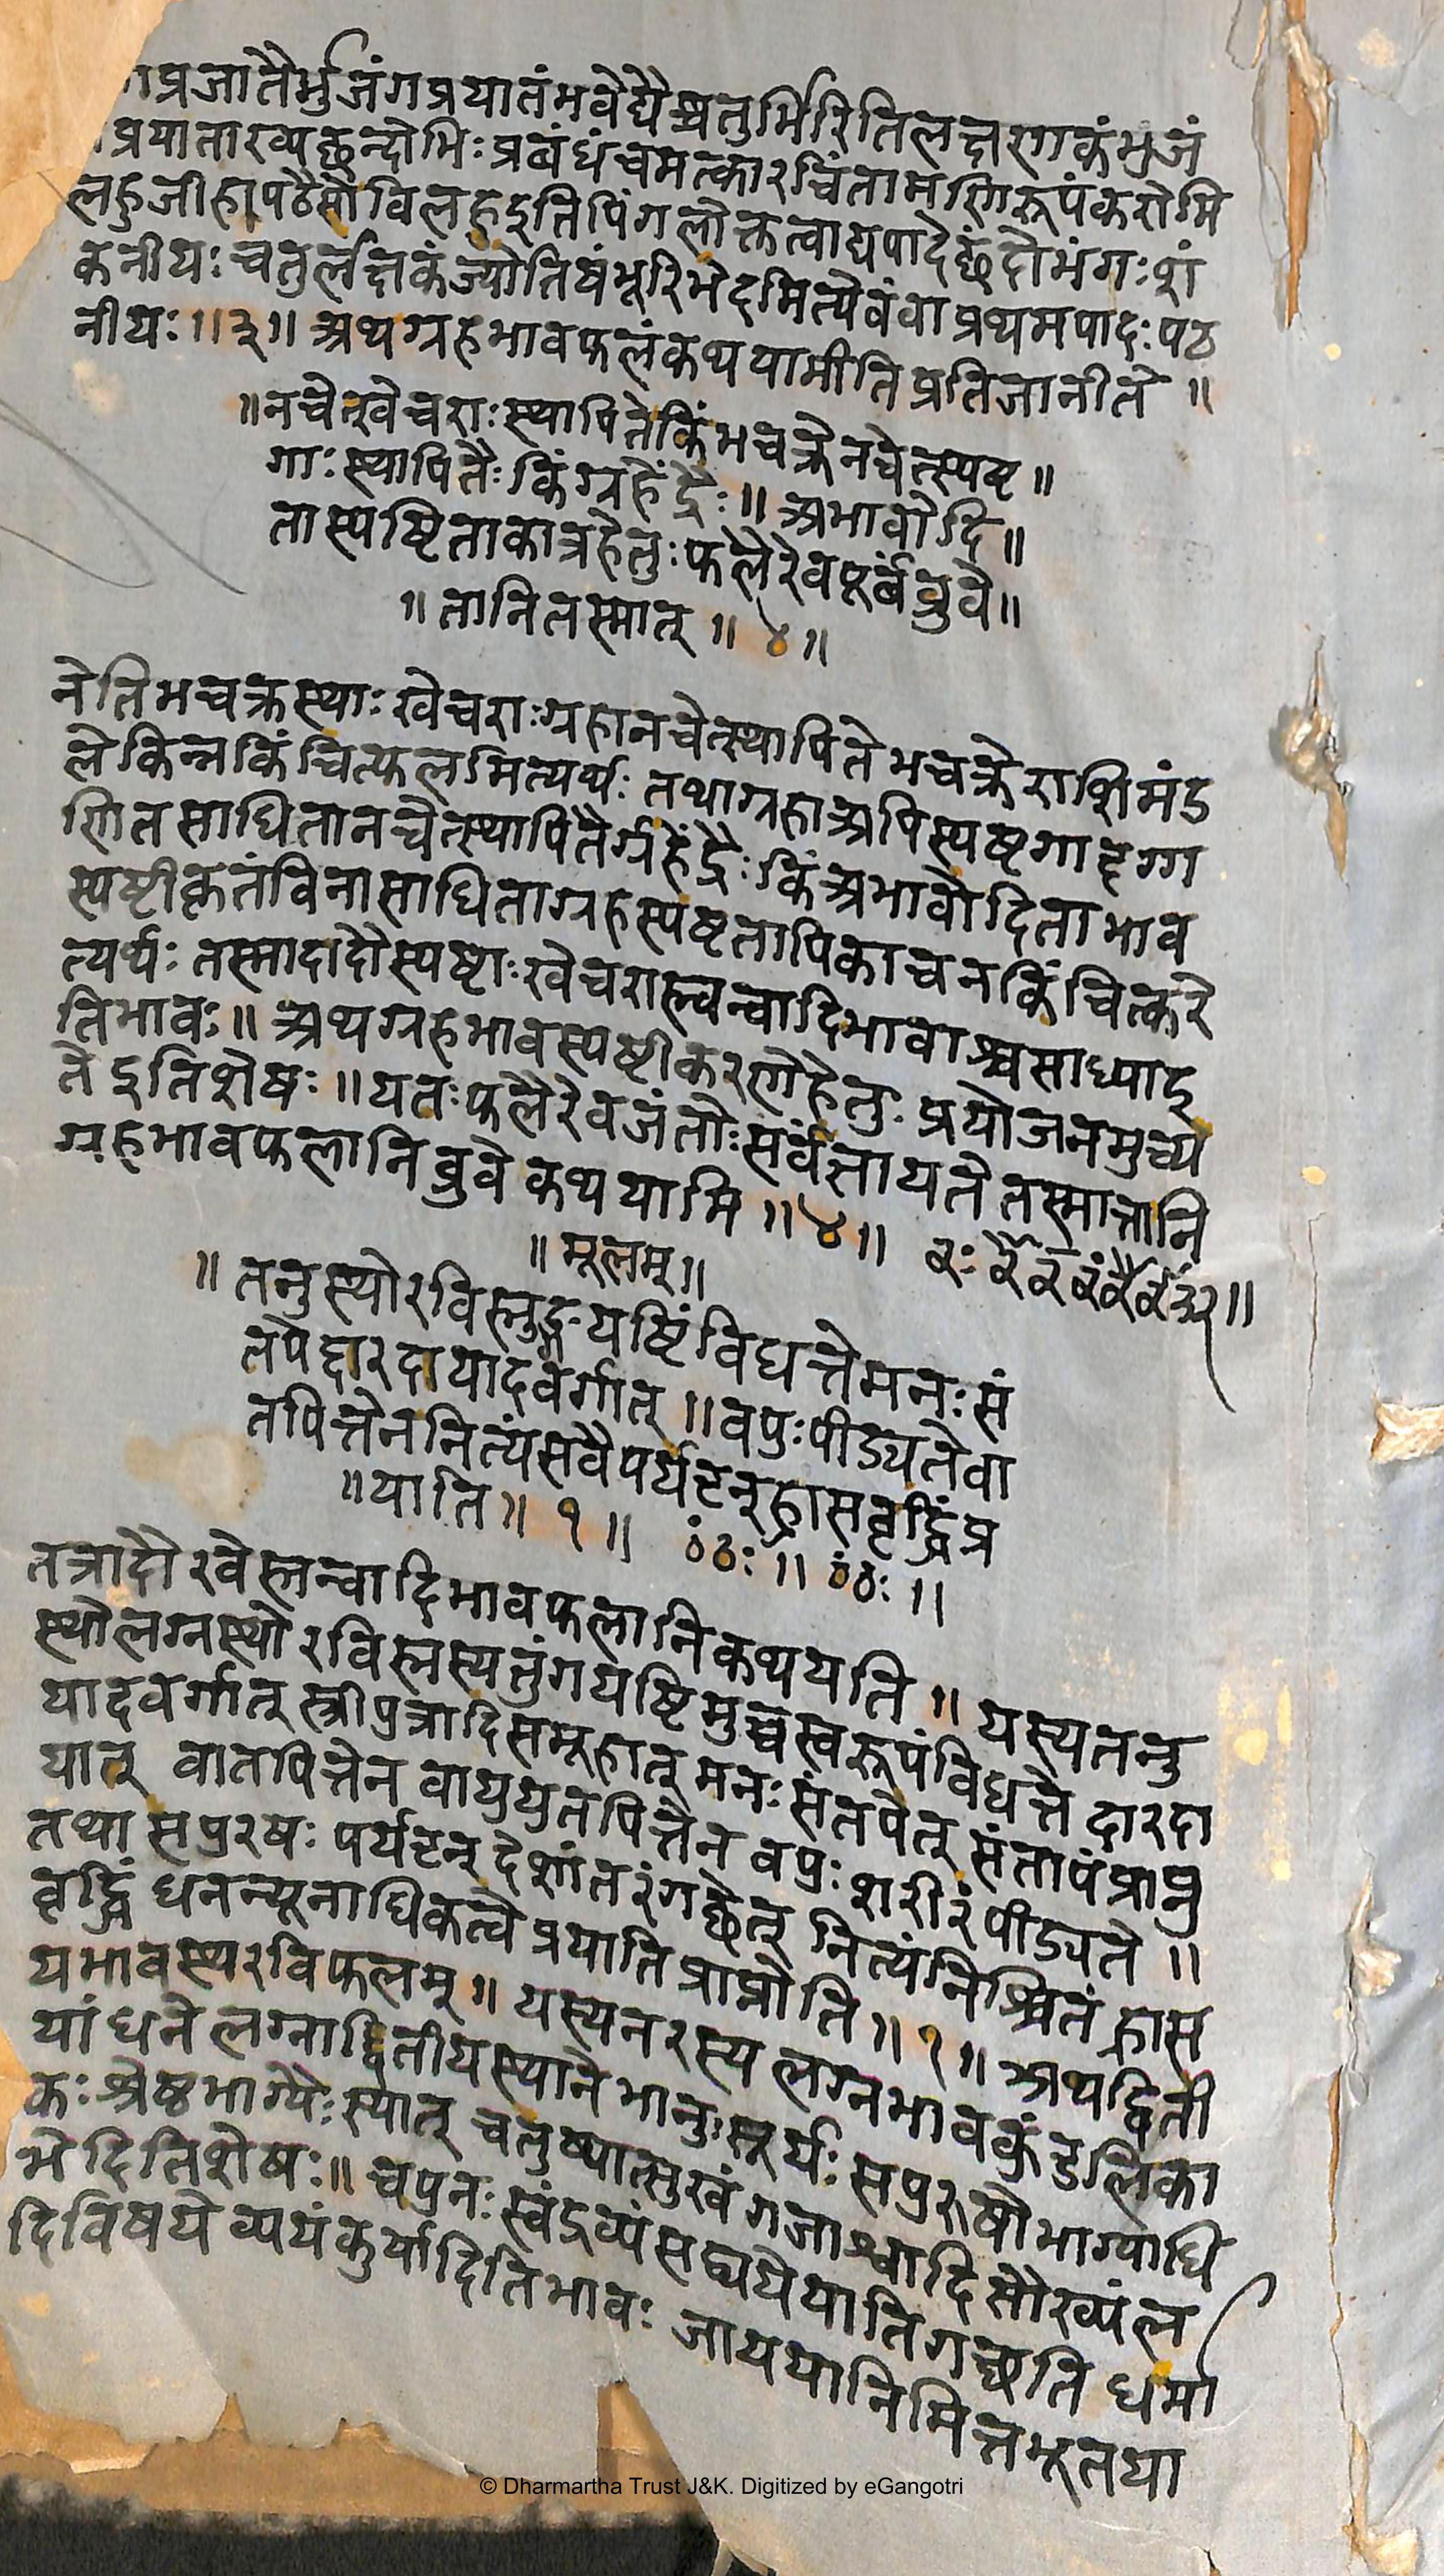 प्रजातैर्भुजंगप्रयातंभवेद्यैश्चतुर्भिरितिलक्षणकंभुजं
प्रयाताख्यछन्दोभिः प्रबंधंचमत्कारचिंतामणिरूपंकरोमि
लहुजीहापठैसोविलहुइतिपिंगलोक्तत्वाद्यपादेछंदोभंगःशं
कनीयः चतुर्लक्षकंज्योतिषंभूरिभेदमित्येवंवाप्रथमपादःपठ
नीयः ॥३॥ अथग्रहभावफलंकथयामीतिप्रतिजानीते ॥
॥नचेत्खेचराःस्थापितेकिंभचक्रेनचेत्स्पष्ट॥
गाःस्थापितैःकिंग्रहेंद्रैः॥ अभावोदि॥
तास्पष्टिताकात्रहेतुःफलैरेवपूर्वंब्रुवे॥
॥तानितस्मात् ॥ ४॥
नेतिभचक्रस्थाः खेचराःग्रहानचेत्स्थापितेभचक्रेराशिमंड
लेकिन्नकिंचित्फलमित्यर्थः तथाग्रहाअपिस्पष्टगादृग्ग
णितसाधितानचेत्स्थापितैर्ग्रहेंद्रैःकिंअभावोदिताभाव
स्पष्टीकृतंविनासाधिताग्रहस्पष्टतापिकाचनकिंचित्करे
त्यर्थः तस्मादादौस्पष्टाःखेचरास्तन्वादिभावाश्चसाध्याइ
तिभावः॥ अथग्रहभावस्पष्टीकरणेहेतुः प्रयोजनमुच्य
तेइतिशेषः ॥यतःफलैरेवजंतोःसर्वंज्ञायतेतस्मात्तानि
ग्रहभावफलानिब्रुवेकथयामि ॥४॥
॥मूलम्॥
॥ तनुस्थोरविस्तुङ्गयष्टिंविधत्तेमनःसं
तपेद्दारदायादवर्गात् ॥वपुःपीड्यतेवा
तपित्तेननित्यंसवैपर्यटन्ह्रासवृद्धिंप्र
॥याति॥ १॥
तत्रादौरवेस्तन्वादिभावफलानिकथयति ॥ यस्यतनु
स्थोलग्नस्थोरविस्तस्यतुंगयष्टिमुच्चस्वरूपंविधत्ते दारदा
यादवर्गात् स्त्रीपुत्रादिसमूहात् मनःसंतपेत् संतापंप्राप्नु
यात् वातपित्तेन वायुयुतपित्तेन वपुः शरीरंपीड्यते ॥
तथा सपुरषः पर्यटन् देशांतरंगछेत् नित्यंनिश्चितं ह्रास
वृद्धिं धनन्यूनाधिकत्वे प्रयाति प्राप्नोति॥१॥ अथद्विती
यभावस्थरविफलम्॥ यस्यनरस्य लग्नभावकुंडलिका
यां धने लग्नाद्वितीयस्थाने भानुःसूर्यः सपुरुषोभाग्याधि
कः श्रेष्ठभाग्यैःस्यात् चतुष्पात्सुखं गजाश्वादिसौख्यंल
भेदितिशेषः॥ चपुनः स्वंद्रव्यंसद्व्ययेयातिगच्छति धर्मा
दिविषये व्ययंकुर्यादितिभावः जाययानिमित्तभूतया